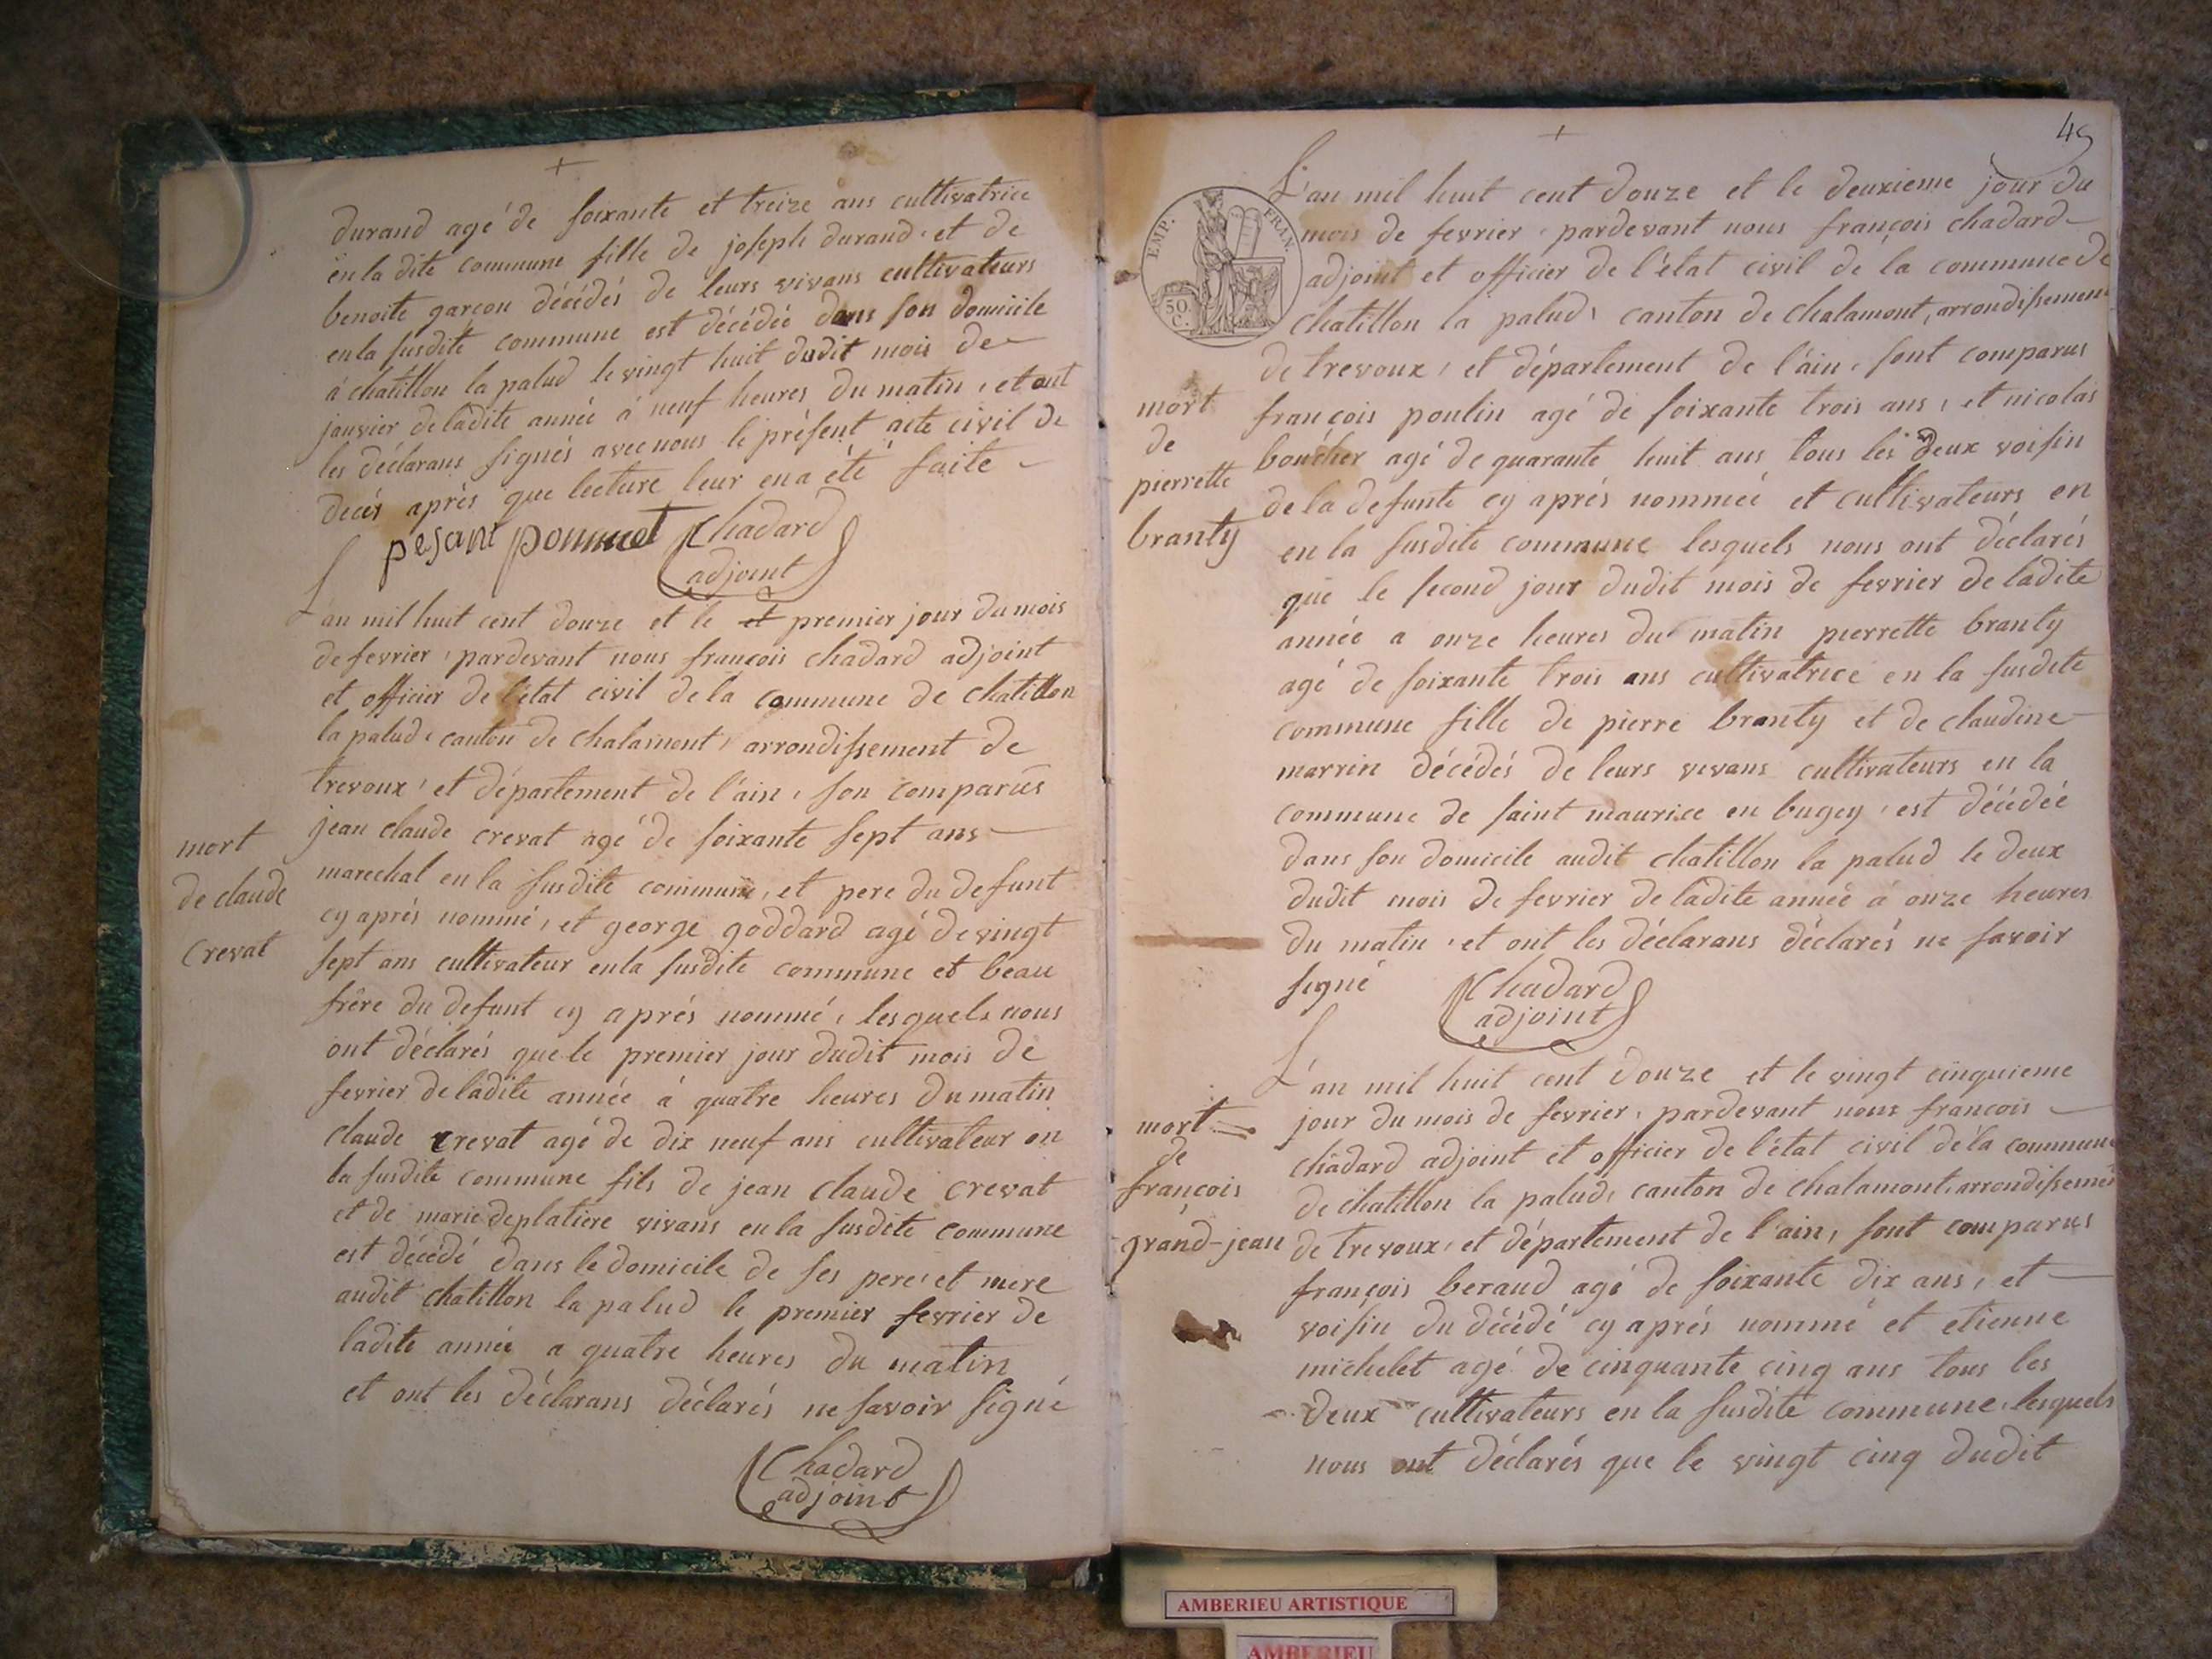 durand agé de soixante et treize ans cultivatrice
en la dite commune fille de joseph durand et de
benoite garçon décédés de leurs vivans cultivateurs
en la susdite commune est décédée dans son domicile
à chatillon la palud le vingt huit dudit mois de
janvier de ladite année à neuf heures du matin, et ont
les déclarans signés avec nous le présent acte civil de
decés après que lecture leur en a été faite
pesant pommet Chadard
adjoint
L'an mil huit cent douze et le et premier jour du mois
de fevrier, pardevant nous françois chadard adjoint
et officier de l'état civil de la commune de chatillon
la palud, canton de chalamont, arrondissement de
trevoux, et département de l'ain, son comparus
jean claude crevat agé de soixante sept ans
mort
marechal en la susdite commune, et pere du defunt
de claude
cy aprés nommé, et george goddard agé de vingt
Crevat
sept ans cultivateur en la susdite commune et beau
frêre du defunt cy aprés nommé, lesquels nous
ont déclarés que le premier jour dudit mois de
fevrier de ladite année à quatre heures du matin
claude crevat agé de dix neuf ans cultivateur en
la susdite commune fils de jean claude crevat
et de marie deplatiere vivans en la susdite commune
est décédé dans le domicile de ses pere, et mere
audit chatillon la palud le premier fevrier de
ladite année a quatre heures du matin
et ont les déclarans déclarés ne savoir signé
Chadard
adjoint
49
EMP. FRAN.
50 C.
L'an mil huit cent douze et le deuxieme jour du
mois de fevrier, pardevant nous françois chadard
adjoint et officier de l'état civil de la commune de
chatillon la palud, canton de chalamont, arrondissement
de trevoux, et département de l'ain, sont comparus
mort
françois poulin agé de soixante trois ans, et nicolas
de
boucher agé de quarante huit ans tous les deux voisin
pierrette
de la defunte cy aprés nommée et cultivateurs en
branty
en la susdite commune lesquels nous ont déclarés
que le second jour dudit mois de fevrier de ladite
année a onze heures du matin pierrette branty
agé de soixante trois ans cultivatrice en la susdite
commune fille de pierre branty et de claudine
marrin décédés de leurs vivans cultivateurs en la
commune de saint maurice en bugey, est décédée
dans son domicile audit chatillon la palud le deux
dudit mois de fevrier de ladite année à onze heures
du matin, et ont les déclarans déclarés ne savoir
signé Chadard
adjoint
L'an mil huit cent douze et le vingt cinquieme
mort
jour du mois de fevrier, pardevant nous françois
de
chadard adjoint et officier de l'état civil de la commune
françois
de chatillon la palud, canton de chalamont, arrondissement
grand-jean
de trevoux, et département de l'ain, sont comparus
françois beraud agé de soixante dix ans, et
voisin du décédé cy aprés nommé et etienne
michelet agé de cinquante cinq ans tous les
deux cultivateurs en la susdite commune, lesquels
nous ont déclarés que le vingt cinq dudit
AMBERIEU ARTISTIQUE
AMBERIEU